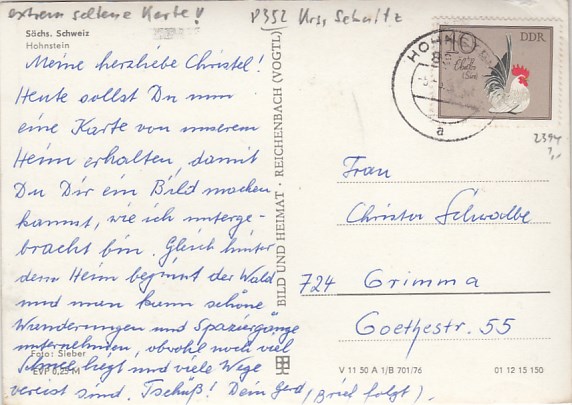 extrem seltene Karte!
P352 Urs, Schultz
Sächs. Schweiz
Hohnstein
Meine herzliebe Christel!
Heute sollst Du nun
eine Karte von unserem
Heim erhalten, damit
Du Dir ein Bild machen
kannst, wie ich unterge-
bracht bin. Gleich hinter
dem Heim beginnt der Wald
und man kann schöne
Wanderungen und Spaziergänge
unternehmen, obwohl noch viel
Schnee liegt und viele Wege
vereist sind. Tschüß! Dein Gerd
(Brief folgt).
Foto: Sieber
EVP 0,25 M
BILD UND HEIMAT - REICHENBACH (VOGTL)
HOHN
a
10
DDR
2394
Frau
Christa Schwalbe
724 Grimma
Goethestr. 55
V 11 50 A 1/B 701/76
01 12 15 150